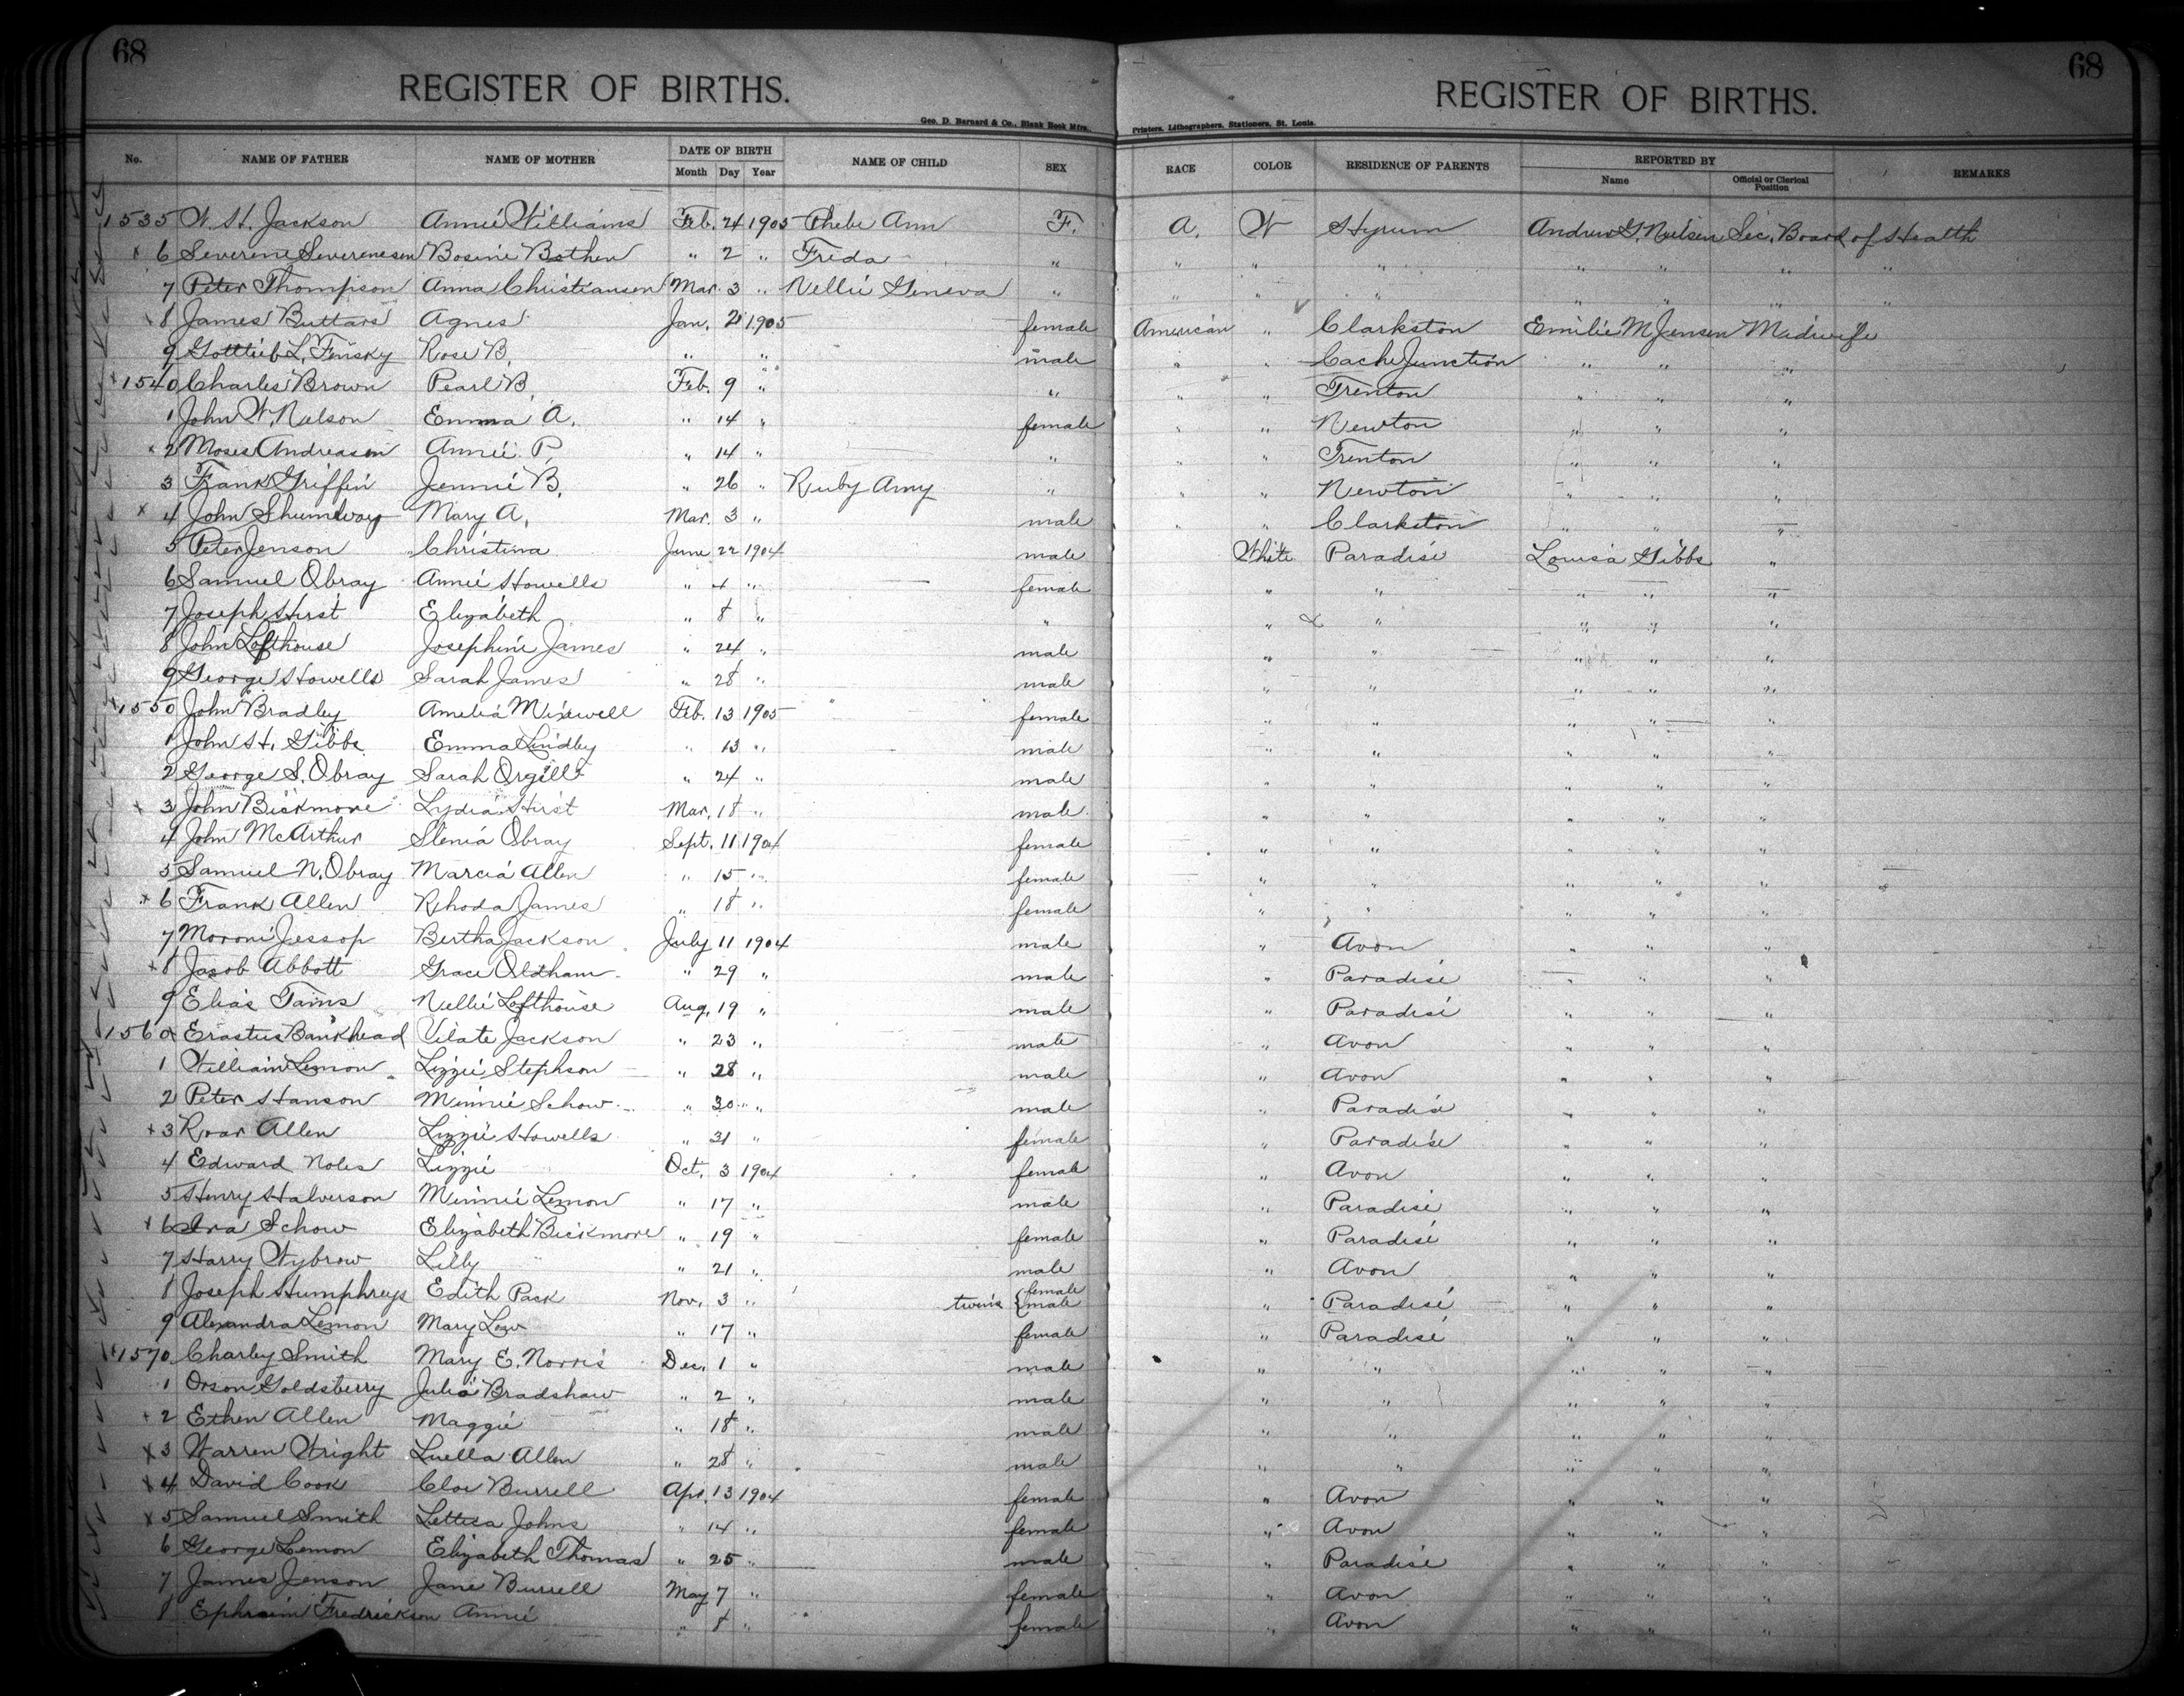 68 68
REGISTER OF BIRTHS. REGISTER OF BIRTHS.
Geo. D. Barnard & Co., Blank Book Mfrs., Printers, Lithographers, Stationers, St. Louis.
No. NAME OF FATHER NAME OF MOTHER DATE OF BIRTH NAME OF CHILD SEX RACE COLOR RESIDENCE OF PARENTS REPORTED BY REMARKS
Month Day Year Name Official or Clerical Position
1535 W. H. Jackson Annie Williams Feb. 24 1905 Phebe Ann F. A. W Hyrum Andrew G. Nielsen Sec. Board of Health
x 6 Severine Severenesen Bosine Bothen " 2 " Frida " " " " " " " "
7 Peter Thompson Anna Christiansen Mar. 3 " Nellie Geneva " " " " " " " "
8 James Buttars Agnes Jan. 21 1905 female American " Clarkston Emilie M Jensen Midwife
9 Gottlieb L. Fensky Rose B. " " male " " Cache Junction " " "
x 1540 Charles Brown Pearl B. Feb. 9 " " " " Trenton " " "
1 John W. Nelson Emma A. " 14 " female " " Newton " " "
x 2 Moses Andreasen Annie P. " 14 " " " " Trenton " " "
3 Frank Griffin Jennie B. " 26 " Ruby Amy " " " Newton " " "
x 4 John Shumway Mary A. Mar. 3 " male " " Clarkston " " "
5 Peter Jenson Christina June 22 1904 male White Paradise Louisa Gibbs "
6 Samuel Obray Annie Howells " 4 " female " " " " "
7 Joseph Hirst Elizabeth " 8 " " " " " " "
8 John Lofthouse Josephine James " 24 " male " " " " "
9 George Howells Sarah James " 28 " male " " " " "
x 1550 John Bradley Amelia Feb. 13 1905 female " " " " "
1 John H. Gibbs Emma Lindley " 13 " male " " " " "
2 George S. Obray Sarah Orgill " 24 " male " " " " "
x 3 John Bickmore Lydia Hirst Mar. 18 " male " " " " "
4 John McArthur Slenia Obray Sept. 11 1904 female " " " " "
5 Samuel N. Obray Marcia Allen " 15 " female " " " " "
x 6 Frank Allen Rhoda James " 18 " female " " " " "
7 Moroni Jessop Bertha Jackson July 11 1904 male " Avon " " "
x 8 Jacob Abbott Grace Oldham " 29 " male " Paradise " " "
9 Elias Tams Nellie Lofthouse Aug. 19 " male " Paradise " " "
1560 x Erastus Bankhead Vilate Jackson " 23 " male " Avon " " "
1 William Lemon Lizzie Stephson " 28 " male " Avon " " "
2 Peter Hanson Minnie Schow " 30 " male " Paradise " " "
x 3 Roar Allen Lizzie Howells " 31 " female " Paradise " " "
4 Edward Noles Lizzie Oct. 3 1904 female " Avon " " "
5 Henry Halverson Minnie Lemon " 17 " male " Paradise " " "
x 6 Ira Schow Elizabeth Bickmore " 19 " female " Paradise " " "
7 Harry Wybrow Lilly " 21 " male " Avon " " "
8 Joseph Humphreys Edith Pack Nov. 3 " twins { female male " Paradise " " "
9 Alexandra Lemon Mary Law " 17 " female " Paradise " " "
x 1570 Charley Smith Mary E. Norris Dec. 1 " male " " " " "
1 Orson Goldsberry Julia Bradshaw " 2 " male " " " " "
x 2 Ethen Allen Maggie " 18 " male " " " " "
x 3 Warren Wright Luella Allen " 28 " male " " " " "
x 4 David Cook Cloe Burrell Apr. 13 1904 female " Avon " " "
x 5 Samuel Smith Lettisa Johns " 14 " female " Avon " " "
6 George Lemon Elizabeth Thomas " 25 " male " Paradise " " "
7 James Jenson Jane Burrell May 7 " female " Avon " " "
8 Ephraim Fredrickson Annie " 8 " female " Avon " " "